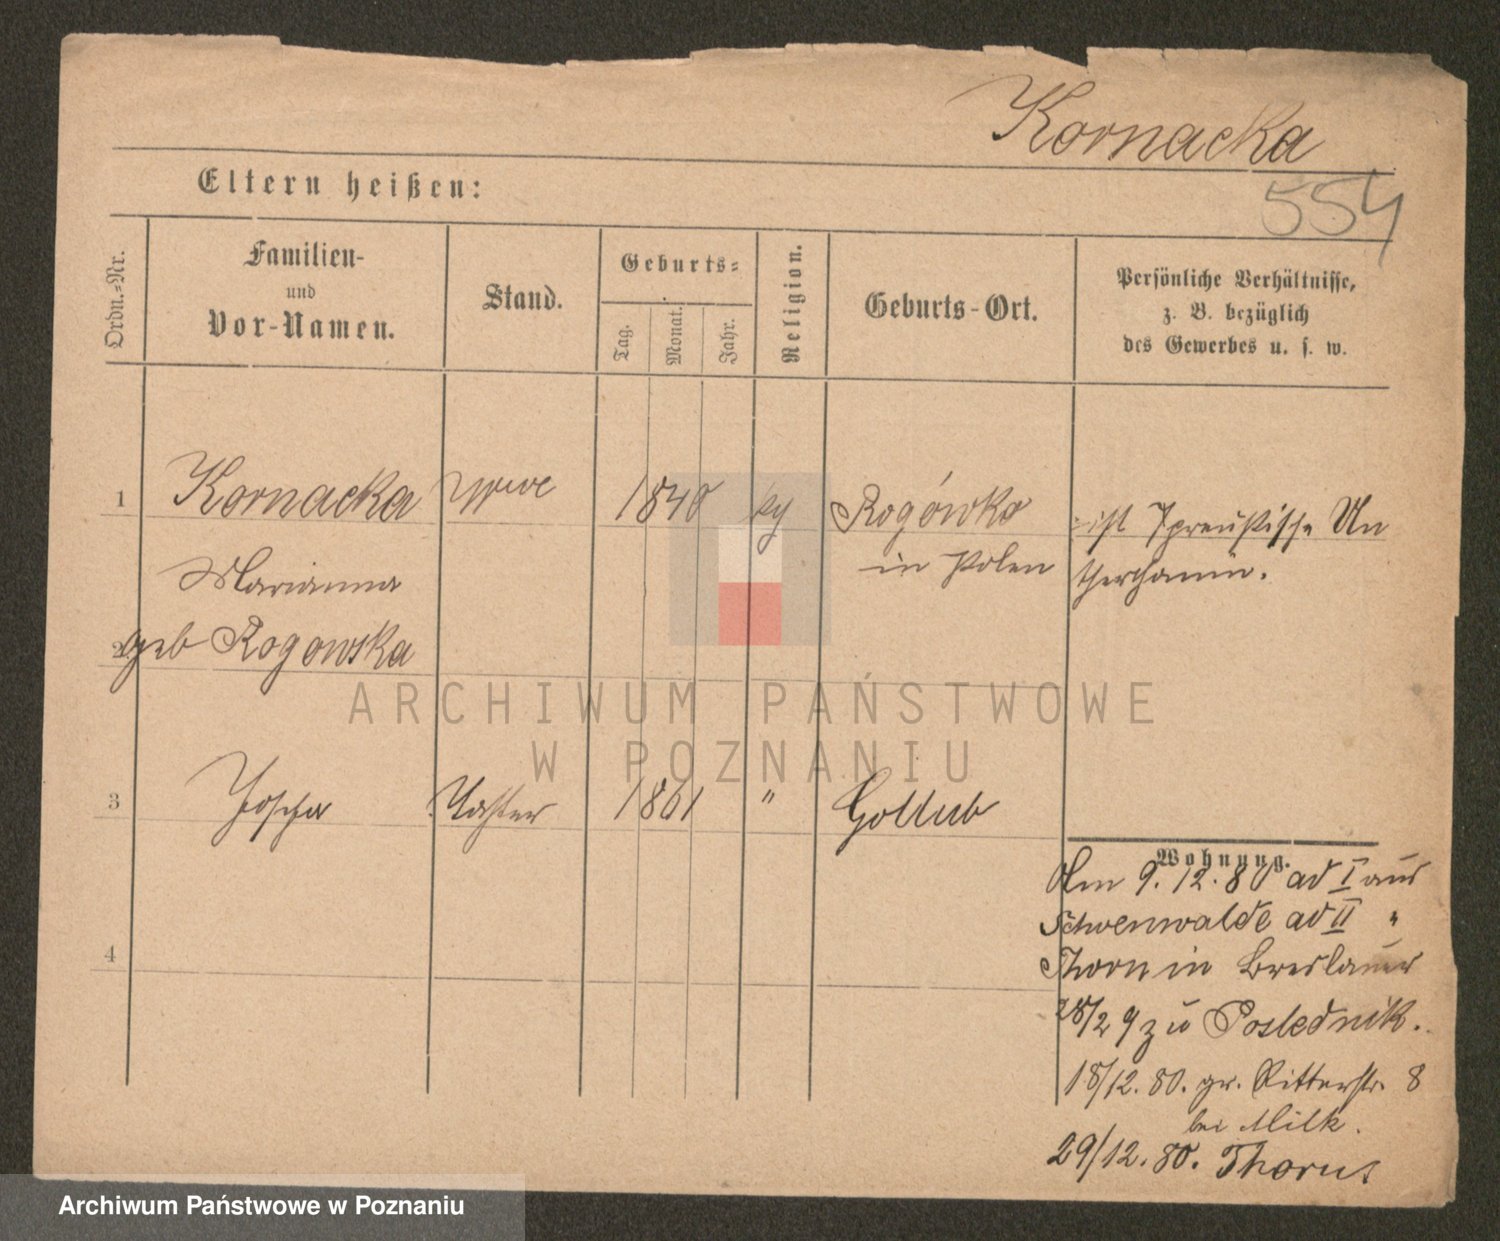 Kornacka
554
Eltern heißen:
Ordn.-Nr.
Familien-
und
Vor-Namen.
Stand.
Geburts-
Tag.
Monat.
Jahr.
Religion.
Geburts-Ort.
Persönliche Verhältnisse,
z. B. bezüglich
des Gewerbes u. s. w.
1 Kornacka Wwe 1840 Rogówko ist preußische Un
Marianna in Polen therthanin.
2 geb Rogowska
3 Tochter 1861 " Gollub
Wohnung.
Am 9. 12. 80 ad I aus
Schoenwalde ad II "
Thorn in Breslauer
28/29 zu Poslednik.
18/12. 80. gr. Ritterstr. 8
bei Milk.
4
29/12. 80. Thorn
ARCHIWUM PAŃSTWOWE
W POZNANIU
Archiwum Państwowe w Poznaniu